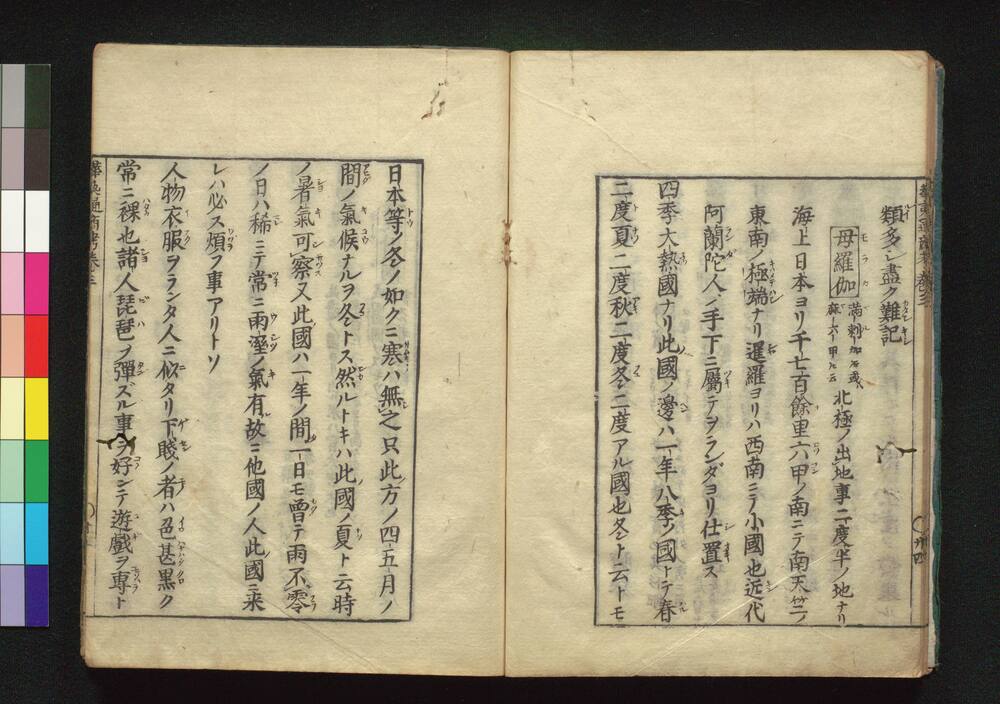 類多シ盡ク難記
母羅伽 満剌加 北極ノ出地事二度半ノ地ナリ
海上日本ヨリ千七百餘里六甲ノ南ニテ南天竺ノ
東南ノ極端ナリ暹羅ヨリハ西南ニテ小國也近代
阿蘭陀人ノ手下ニ屬テヲランダヨリ仕置ス
四季大熱國ナリ此國ノ邊ハ一年八季ノ國トテ春
二度夏二度秋二度冬二度アル國也冬ト云トモ
日本等ノ冬ノ如クニ寒ハ無之只此方ノ四五月ノ
間ノ氣候ナルヲ冬トス然ルトキハ此國ノ夏ト云時
ノ暑氣可察又此國ハ一年ノ間一日モ曽テ雨不零
ノ日ハ稀ニテ常ニ雨溼ノ氣有故ニ他國ノ人此國ニ来
レハ必ス煩フ事アリトソ
人物衣服ヲランタ人ニ似タリ下賤ノ者ハ色甚黒ク
常ニ裸也諸人琵琶ヲ彈ズル事ヲ好ンテ遊戲ヲ專ト